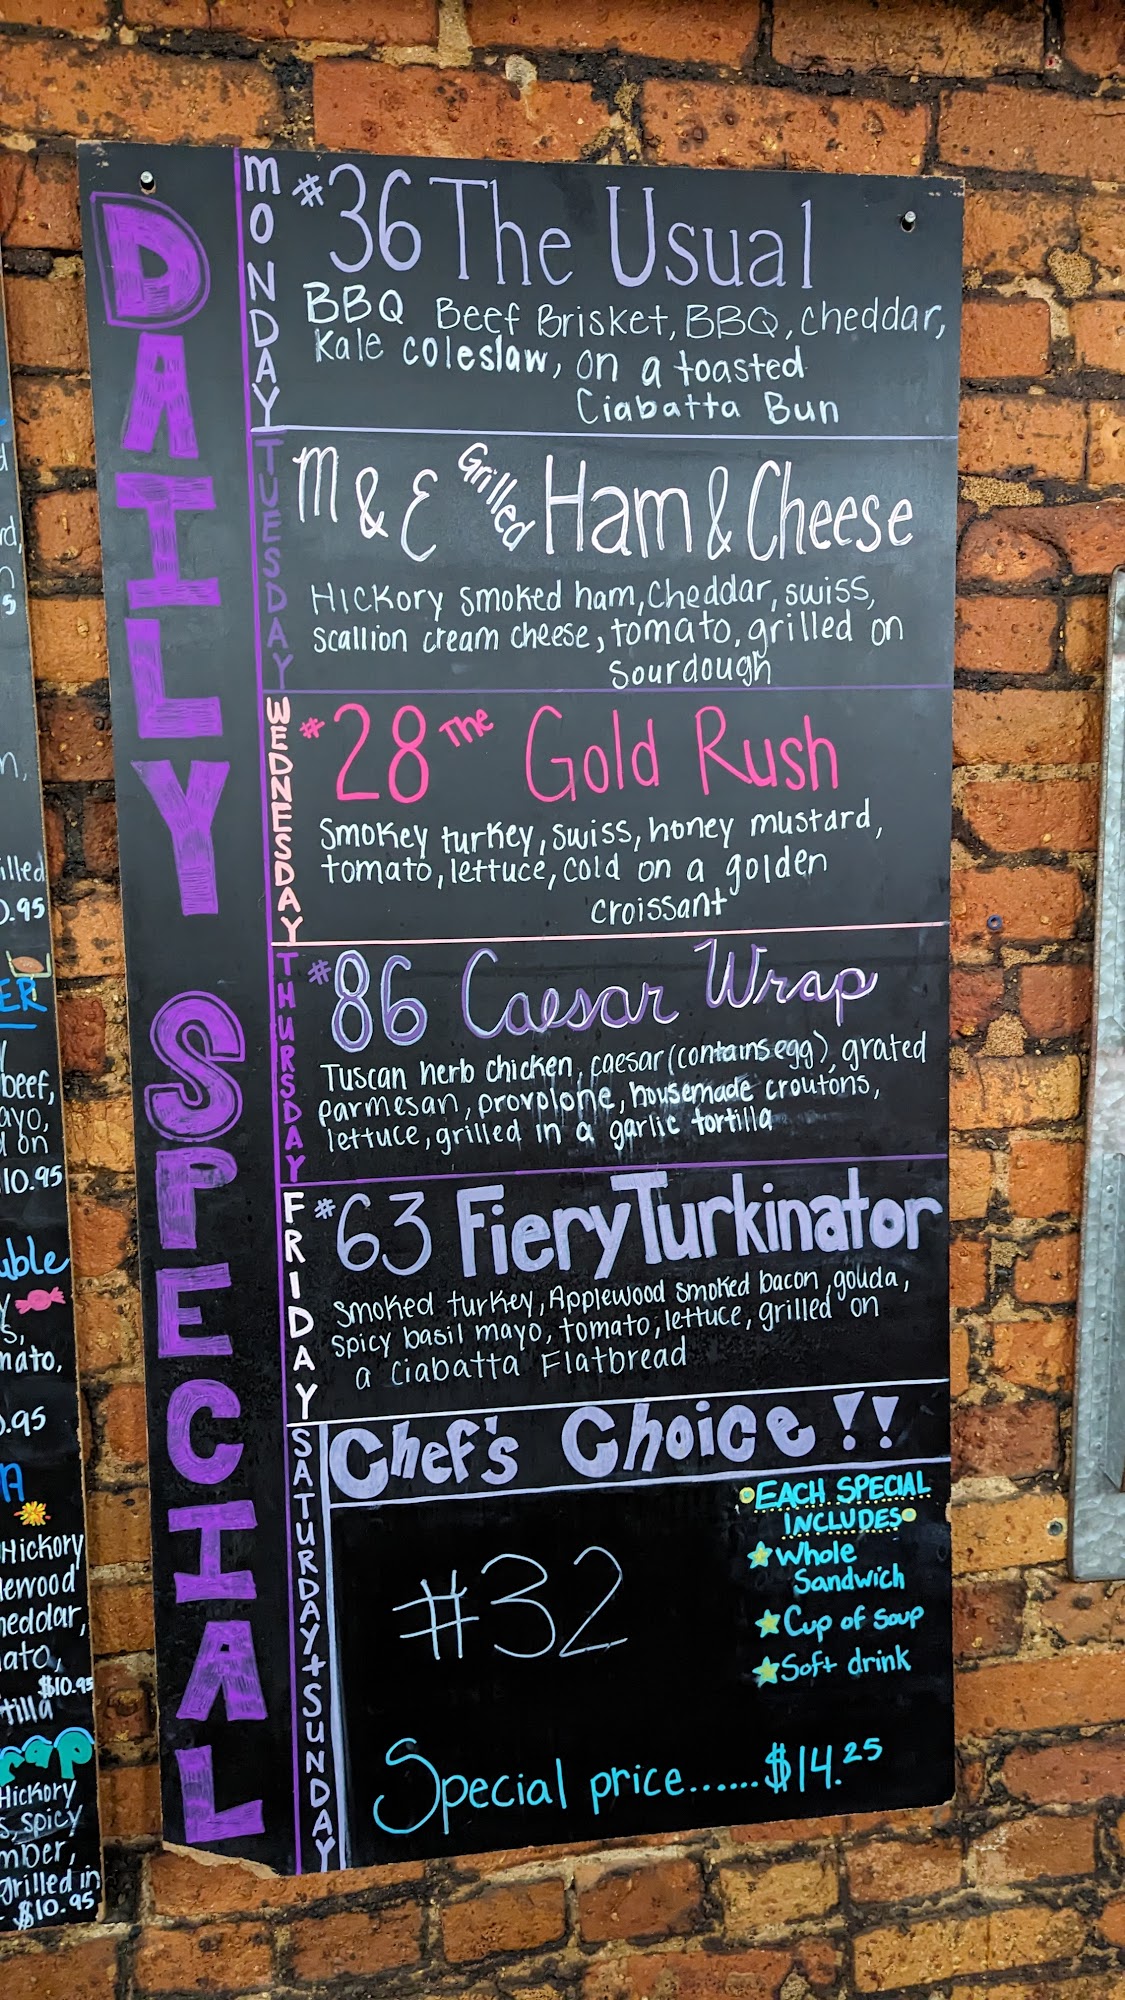 DAILY SPECIAL
MONDAY
#36 The Usual
BBQ Beef Brisket, BBQ, cheddar,
Kale coleslaw, on a toasted
Ciabatta Bun
TUESDAY
M & E Grilled Ham & Cheese
Hickory smoked ham, cheddar, swiss,
scallion cream cheese, tomato, grilled on
sourdough
WEDNESDAY
#28 The Gold Rush
Smokey turkey, swiss, honey mustard,
tomato, lettuce, cold on a golden
croissant
THURSDAY
#86 Caesar Wrap
Tuscan herb chicken, caesar (contains egg), grated
parmesan, provolone, housemade croutons,
lettuce, grilled in a garlic tortilla
FRIDAY
#63 Fiery Turkinator
Smoked turkey, Applewood smoked bacon, gouda,
spicy basil mayo, tomato, lettuce, grilled on
a Ciabatta Flatbread
SATURDAY + SUNDAY
Chef's Choice!!
#32
EACH SPECIAL
INCLUDES
Whole
Sandwich
Cup of soup
Soft drink
Special price.......$14.25
beef,
on
10.95
Hickory
$10.95
Hickory
spicy
grilled in
$10.95